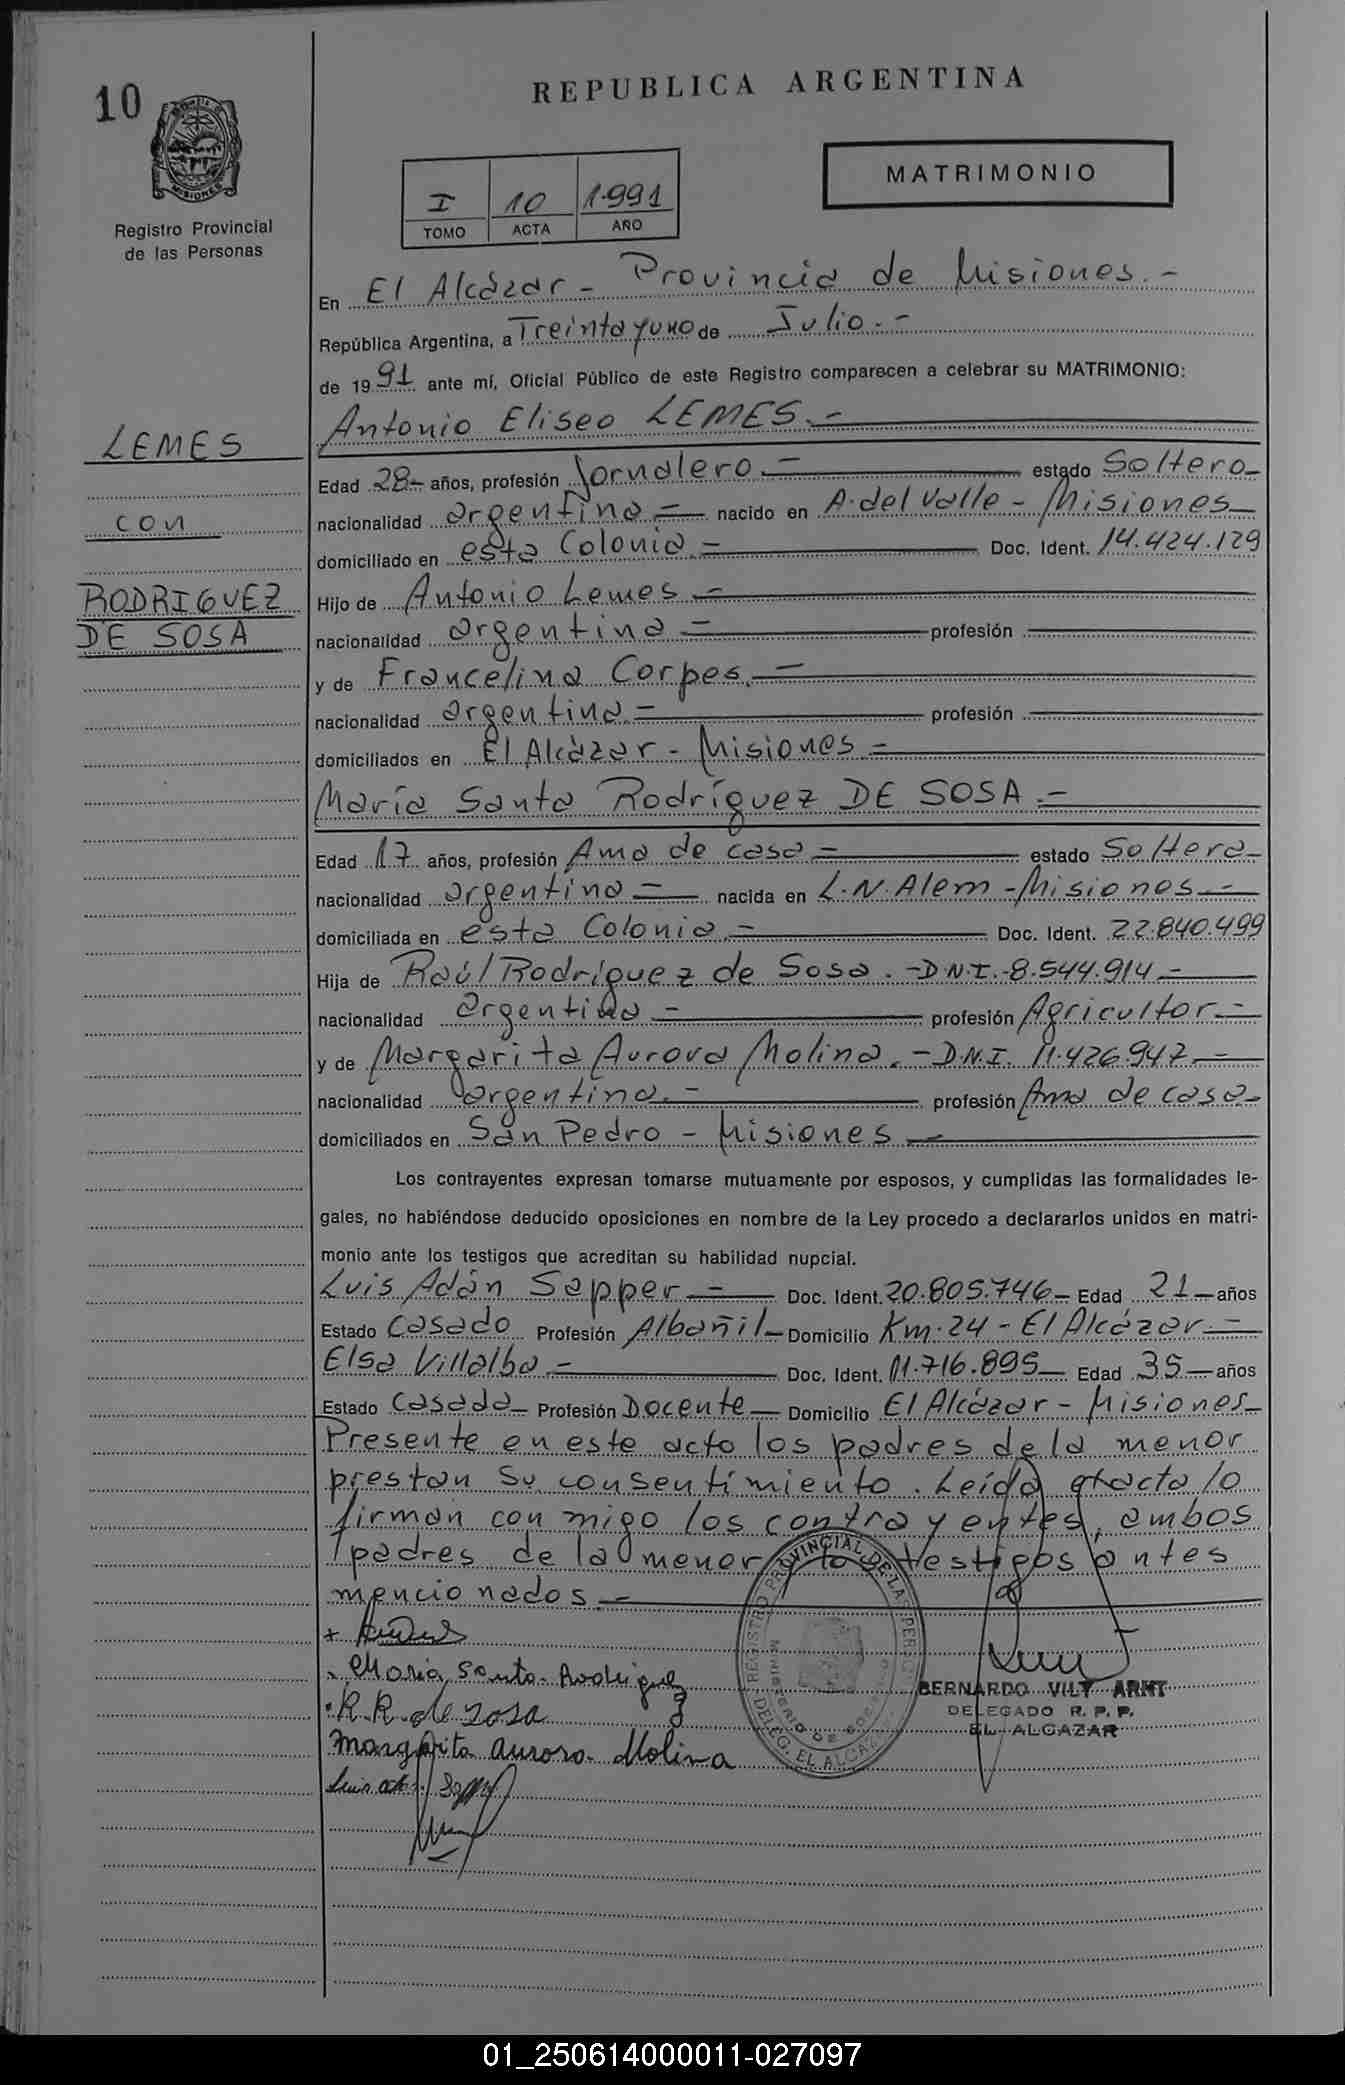 10
REPUBLICA ARGENTINA
MISIONES
Registro Provincial
de las Personas
I 10 1.991
TOMO ACTA AÑO
MATRIMONIO
En El Alcázar - Provincia de Misiones.-
República Argentina, a Treinta y uno de Julio.-
de 1991 ante mí, Oficial Público de este Registro comparecen a celebrar su MATRIMONIO:
LEMES
con
RODRIGUEZ
DE SOSA
Antonio Eliseo LEMES.-
Edad 28- años, profesión Jornalero.- estado Soltero-
nacionalidad argentina- nacido en A. del Valle - Misiones-
domiciliado en esta Colonia.- Doc. Ident. 14.424.129
Hijo de Antonio Lemes.-
nacionalidad argentina- profesión
y de Francelina Corpes.-
nacionalidad argentina.- profesión
domiciliados en El Alcázar - Misiones-
María Santa Rodríguez DE SOSA.-
Edad 17 años, profesión Ama de casa- estado Soltera-
nacionalidad argentina- nacida en L.N. Alem - Misiones-
domiciliada en esta Colonia.- Doc. Ident. 22.840.499
Hija de Raúl Rodríguez de Sosa.-D.N.I.-8.544.914-
nacionalidad argentina- profesión Agricultor.-
y de Margarita Aurora Molina.-D.N.I. 11.426.947-
nacionalidad argentina.- profesión Ama de casa-
domiciliados en San Pedro - Misiones-
Los contrayentes expresan tomarse mutuamente por esposos, y cumplidas las formalidades le-
gales, no habiéndose deducido oposiciones en nombre de la Ley procedo a declararlos unidos en matri-
monio ante los testigos que acreditan su habilidad nupcial.
Luis Adán Sapper- Doc. Ident. 20.805.746- Edad 21- años
Estado Casado Profesión Albañil- Domicilio Km. 24 - El Alcázar.-
Elsa Villalba.- Doc. Ident. 11.716.895- Edad 35- años
Estado Casada- Profesión Docente- Domicilio El Alcázar - Misiones-
Presente en este acto los padres de la menor
prestan su consentimiento. Leída el acta lo
firman con migo los contrayentes, ambos
padres de la menor y los testigos antes
mencionados.-
María Santa Rodriguez
R.R. de sosa
Margarita Aurora Molina
REGISTRO PROVINCIAL DE LAS PERS
DELEG. EL ALCAZAR
BERNARDO VILT ARNT
DELEGADO R. P. P.
EL ALCAZAR
01_250614000011-027097